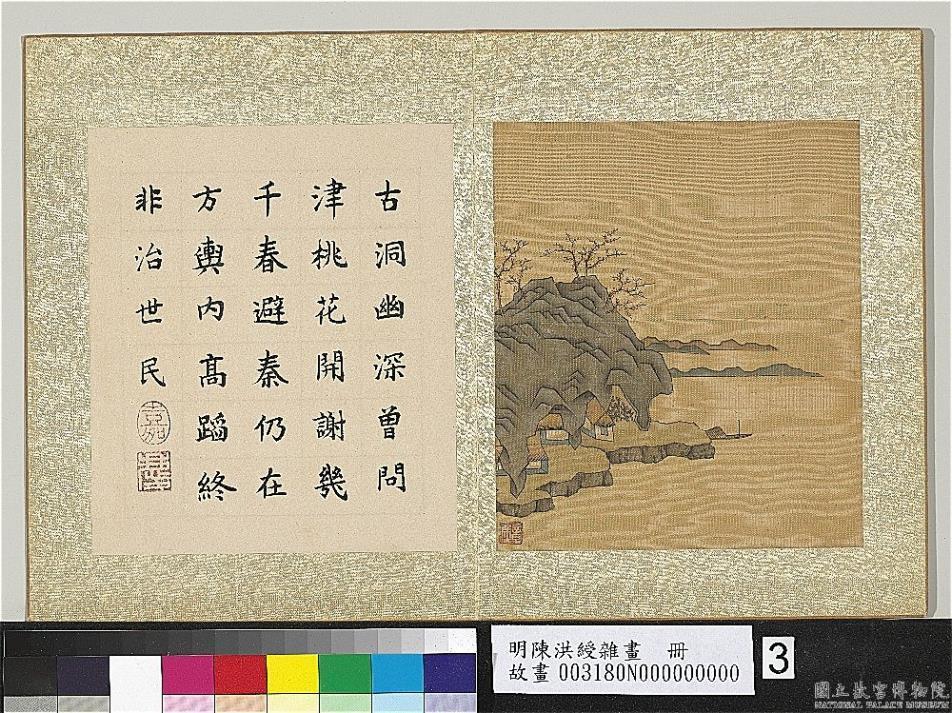 古洞幽深曾問
津桃花開謝幾
千春避秦仍在
方輿内高蹈終
非治世民
明陳洪綬雜畫 冊
故畫 003180N000000000
3
國立故宮博物院
NATIONAL PALACE MUSEUM